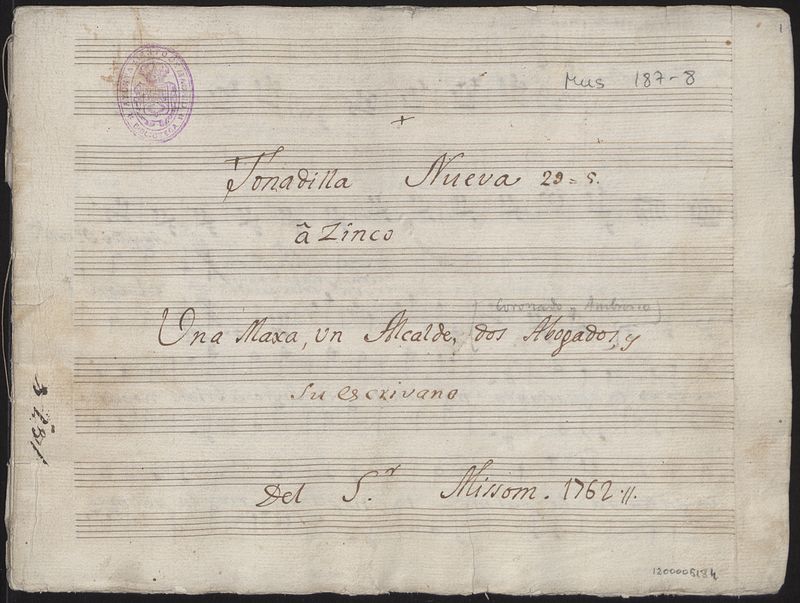 Mus 187-8
+
Tonadilla Nueva 29=5.
â Zinco
(Coronado y Ambrosio)
Una Maxa, un Alcalde, dos Abogados, y
su escrivano
Del S.r Missom. 1762.
1200005184